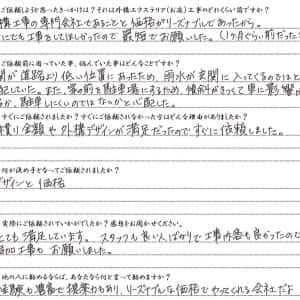 ご依頼しようと思ったきっかけは？それは外構エクステリア(お庭)工事のどれくらい前ですか？
構工事の専門会社であることと価格がリーズナブルであったから。
にも工事をしてほしかったので最短でお願いした。(1ヶ月ぐらい前だった
依頼前に困っていた事、悩んでいた事はどんなことですか？
関が道路より低い位置にあったため、雨水が玄関に入ってくるのではと
配していた。また、家の前を駐車場にするため、傾斜がきつくて車に影響が
るか、駐車しにくいのではなどと心配した。
すぐにご依頼されましたか？すぐにご依頼されなかった方はどんな理由がありましたか？
積り金額や外構デザインが満足だったのですぐに依頼しました。
何が決め手となってご依頼されましたか？
デザインと価格
実際にご依頼されていかがでしたか？感想をお聞かせください。
ても満足しています。スタッフも良い人ばかりで工事内容も良かったので
追加工事もお願いしました。
他の人に勧めるならば、あなたなら何と言って勧めますか？
経験も豊富で提案力もあり、リーズナブルな価格でやってくれる会社だよ